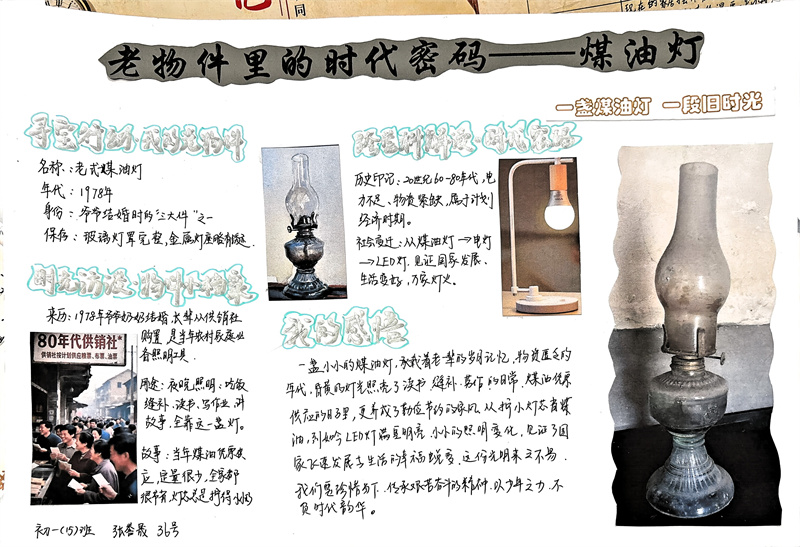 同
老物件里的时代密码——煤油灯
一盏煤油灯 一段旧时光
寻宝行动·我的老物件
名称：老式煤油灯
年代：1978年
身份：爷爷结婚时的“三大件”之一
保存：玻璃灯罩完整，金属灯座略有
时光访谈·物件小档案
来历：1978年爷爷奶奶结婚，太爷从供销社
购置，是当年农村家庭必
备照明工具.
80年代供销社
供销社按计划供应粮票、布票、油票
用途：夜晚照明：吃饭
缝补、读书、写作业、讲
故事，全靠这一盏灯。
故事：当年煤油凭票供
应，定量很少，全家都
很节省，灯芯总是拧得小小的
历史印记：20世纪60-80年代，电
力不足、物资紧缺，属于计划
经济时期。
社会变迁：从煤油灯→电灯
→LED灯，见证国家发展、
生活变好，万家灯火。
我的感悟
一盏小小的煤油灯，承载着老一辈的岁月记忆，物资匮乏的
年代，昏黄的灯光照亮了读书、缝补、劳作的日常，煤油凭票
供应的日子里，更养成了勤俭节约的家风，从拧小灯芯省煤
油，到如今LED灯盏盏明亮，小小的照明变化，见证了国
家飞速发展与生活的幸福蜕变，这份光明来之不易，
我们要珍惜当下，传承艰苦奋斗的精神，以少年之力，不
负时代韶华。
初一(15)班 张 36号